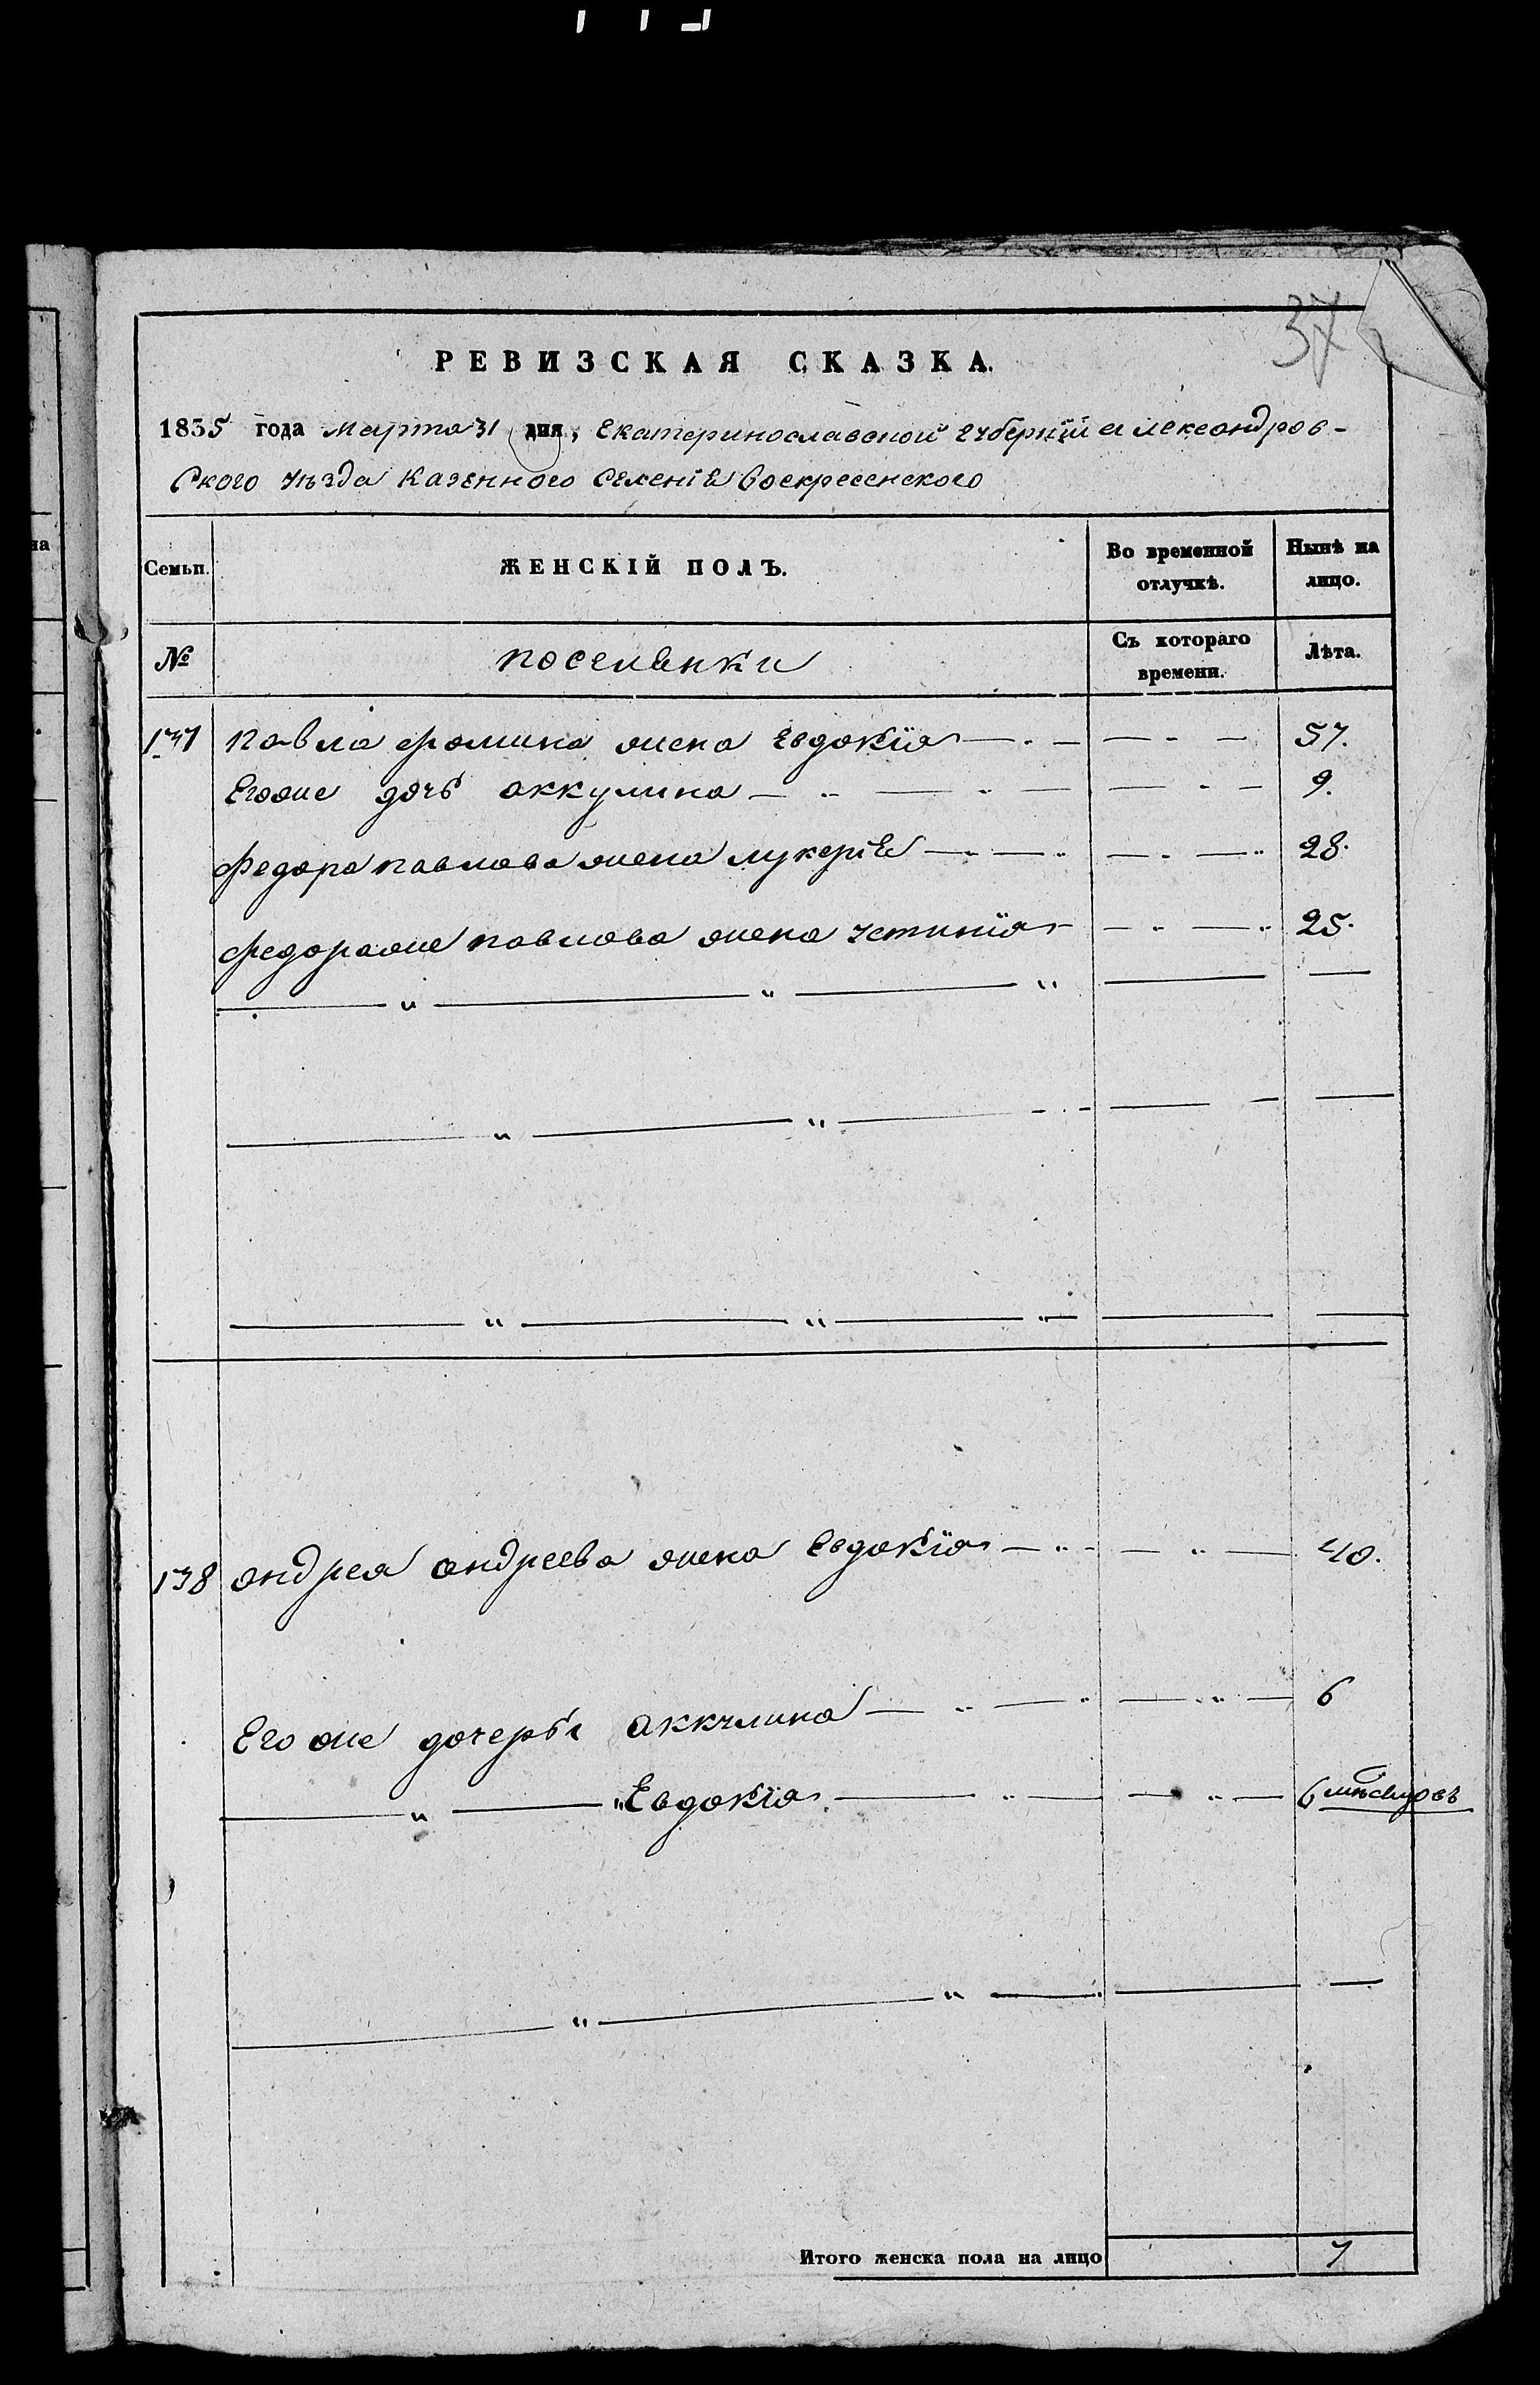 37
РЕВИЗСКАЯ СКАЗКА.
1835 года марта 31 дня, Екатеринославской губернïи александров-
ского уезда казенного Селенïя Воскресенского
Семьи. ЖЕНСКІЙ ПОЛЪ. Во временной отлучкѣ. Нынѣ на лицо.
№ поселянки Съ котораго времени. Лѣта.
137 павла фомина жена Евдокïя — 57.
Егоже дочь аккулина — 9.
федора павлова жена лукерïя — 28.
федораже павлова жена устинïя — 25.
138 андрея андреева жена Евдокïя — 40.
Его же дочеры аккулина — 6
— " — " Евдокïя — 6 мѣсяцовъ
Итого женска пола на лицо 7